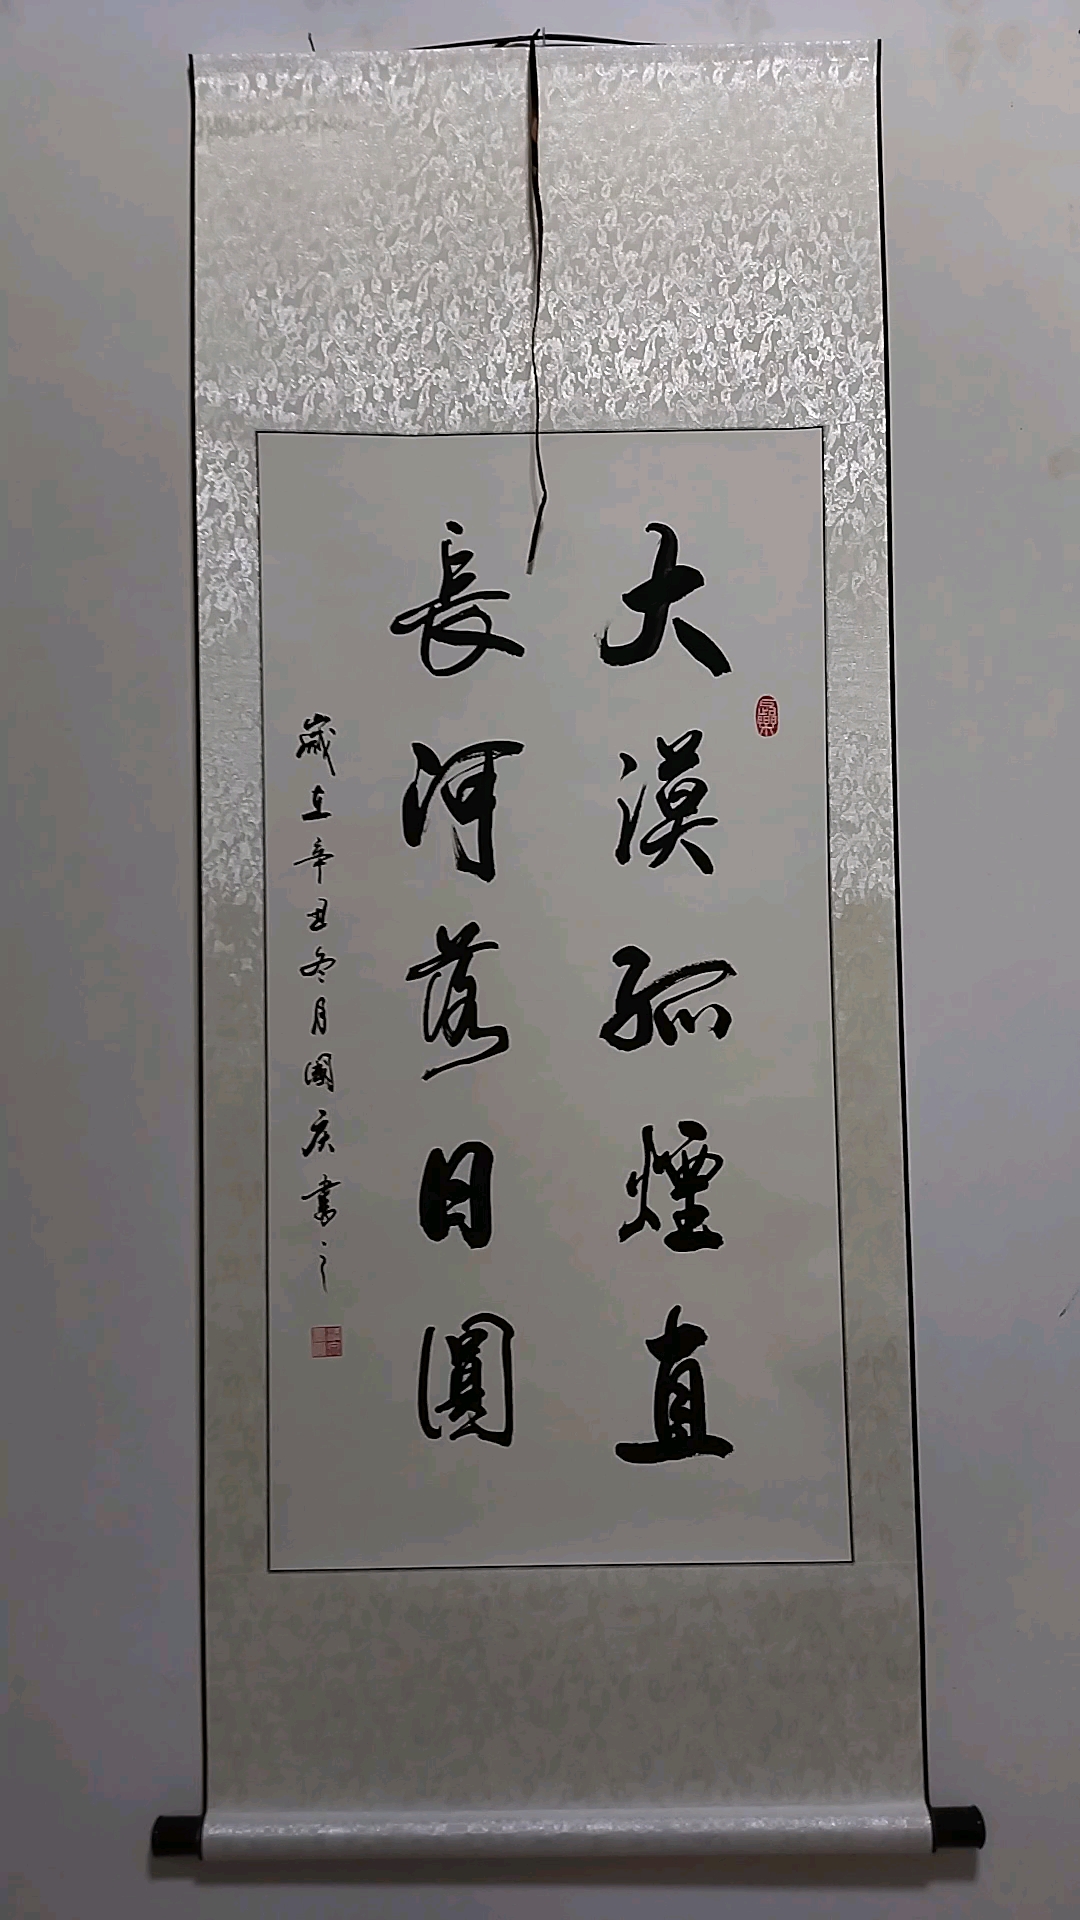 大漠孤煙直
長河落日圓
歲在辛丑冬月國庆書之